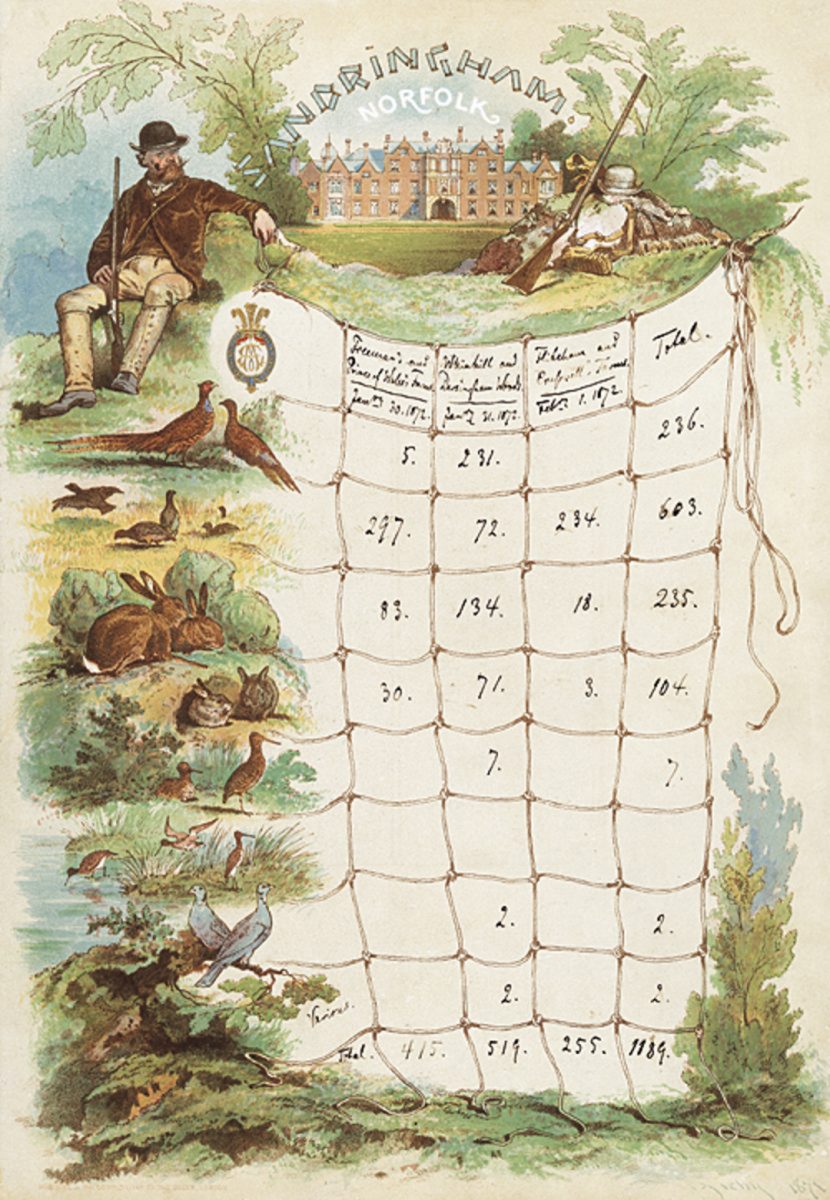 SANDRINGHAM.
NORFOLK
Freeman's and
Prince of Wales's Farms
Jan.ry 30. 1872.
and
Dersingham Woods
Jan.ry 31. 1872.
and
Feb.ry 1. 1872.
Total.
5. 231. 236.
297. 72. 234. 603.
83. 134. 18. 235.
30. 71. 3. 104.
7. 7.
2. 2.
Various. 2. 2.
Total. 415. 519. 255. 1189.